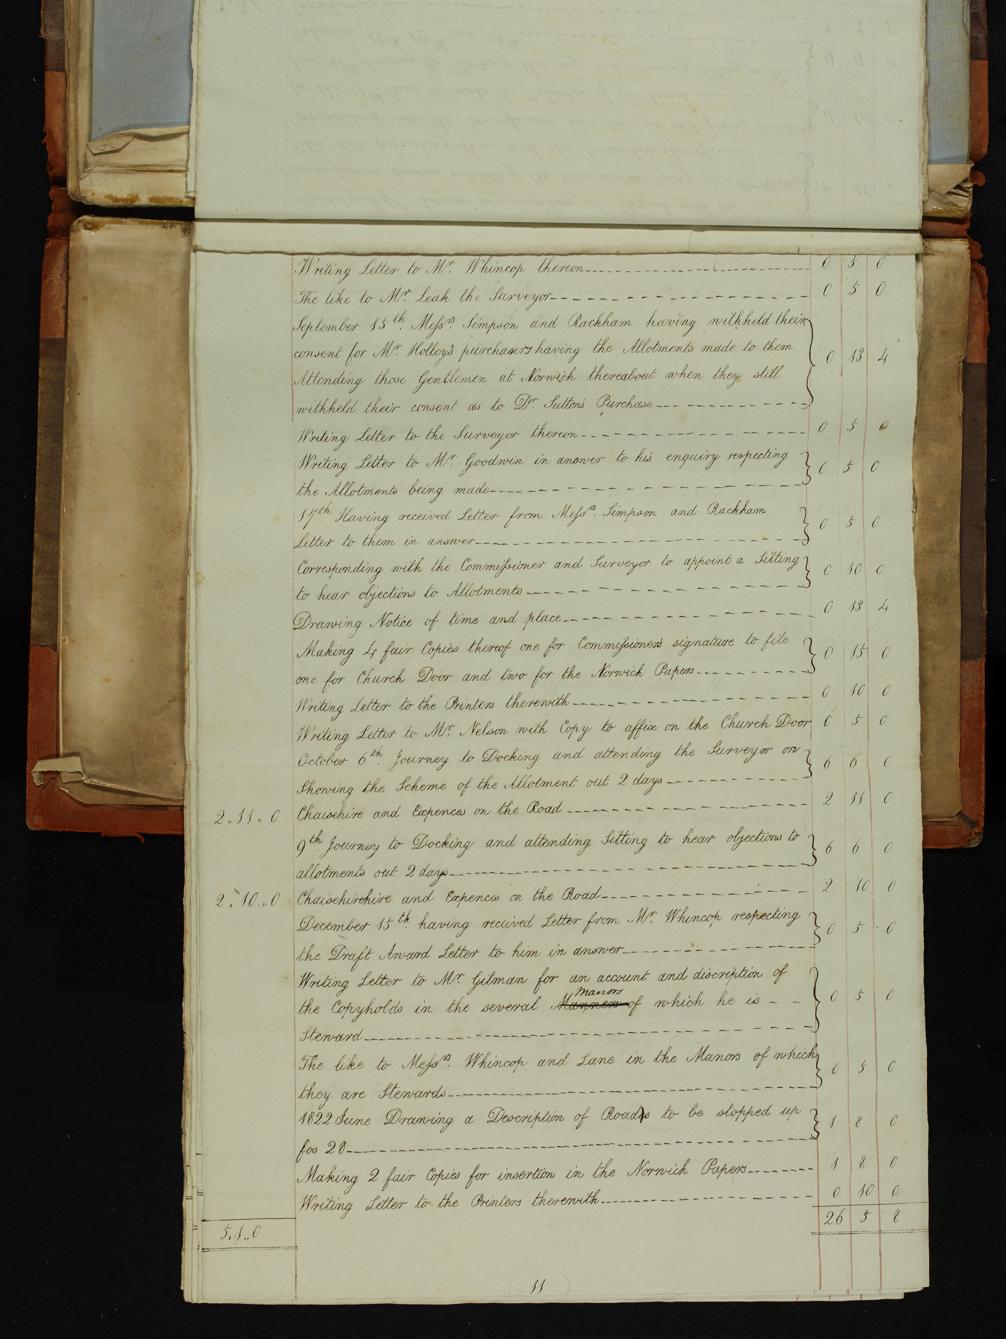 Writing Letter to Mr. Whincop thereon 0 5 0
The like to Mr. Leak the Surveyor 0 5 0
September 15th. Messrs. Simpson and Rackham having withheld their
consent for Mr. Holley's purchasers having the Allotments made to them
Attending those Gentlemen at Norwich thereabout when they still 0 13 4
withheld their consent as to Dr. Sutton's Purchase
Writing Letter to the Surveyor thereon 0 5 0
Writing Letter to Mr. Goodwin in answer to his enquiry respecting
the Allotments being made 0 5 0
17th Having received Letter from Messrs. Simpson and Rackham
Letter to them in answer 0 5 0
Corresponding with the Commissioner and Surveyor to appoint a Sitting
to hear objections to Allotments 0 10 0
Drawing Notice of time and place 0 13 4
Making 4 fair Copies thereof one for Commissioners signature to file
one for Church Door and two for the Norwich Papers 0 15 0
Writing Letter to the Printers therewith 0 10 0
Writing Letter to Mr. Nelson with Copy to affix on the Church Door 0 5 0
October 6th. Journey to Docking and attending the Surveyor on
Showing the Scheme of the Allotment out 2 days 6 6 0
2.11.0 Chaisehire and Expences on the Road 2 11 0
9th Journey to Docking and attending Sitting to hear objections to
allotments out 2 days 6 6 0
2.10.0 Chaisehirehire and Expences on the Road 2 10 0
December 15th. having received Letter from Mr. Whincop respecting
the Draft Award Letter to him in answer 0 5 0
Writing Letter to Mr. Gilman for an account and discription of
the Copyholds in the several Manners Manors of which he is 0 5 0
Steward
The like to Messrs. Whincop and Lane in the Manors of which
they are Stewards 0 5 0
1822 June Drawing a Description of Roads to be stopped up
fos 28 1 8 0
Making 2 fair Copies for insertion in the Norwich Papers 1 8 0
Writing Letter to the Printers therewith 0 10 0
5.1.0 26 5 8
11